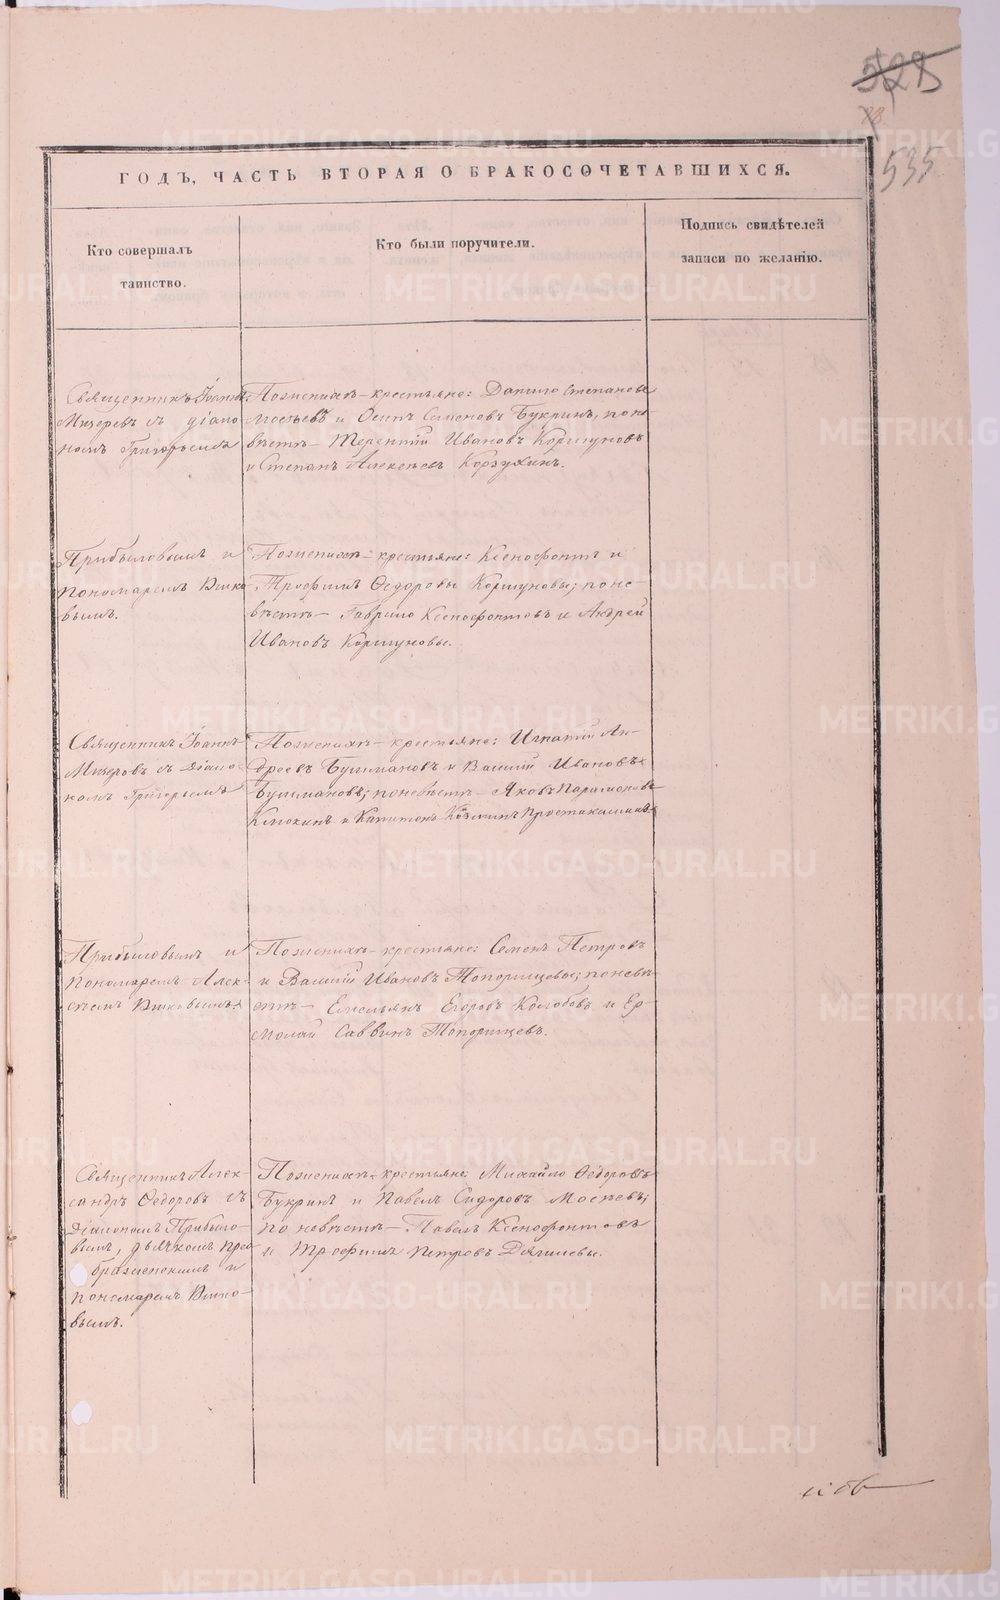 535
ГОДЪ, ЧАСТЬ ВТОРАЯ О БРАКОСОЧЕТАВШИХСЯ.
Кто совершалъ
таинство.
Кто были поручители.
Подпись свидѣтелей
записи по желанію.
Священникъ Іоаннъ
Мизеровъ съ діако-
номъ Григорьемъ
По женихѣ - крестьяне: Данило Степановъ
Мосѣевъ и Осипъ Семеновъ Букринъ, по не-
вѣстѣ - Терентий Ивановъ Коршуновъ
и Степанъ Алексѣевъ Корзухинъ.
Прибыловымъ и
пономаремъ
вымъ.
По женихѣ - крестьяне: Ксенофонтъ и
Трофимъ Ѳедоровы Коршуновы; по не-
вѣстѣ - Гаврило Ксенофонтовъ и Андрей
Ивановъ Коршуновы.
Священникъ Іоаннъ
Мизеровъ съ діако-
номъ Григорьемъ
По женихѣ - крестьяне: Игнатий Ан-
дреевъ Бушмановъ и Василий Ивановъ
Бушмановъ; по невѣстѣ - Яковъ Парамоновъ
и Капитонъ Козминъ
Прибыловымъ и
пономаремъ Алек-
сѣемъ
По женихѣ - крестьяне: Семенъ Петровъ
и Василий Ивановъ Топорищевы; по невѣ-
стѣ - Емельянъ Егоровъ Колобовъ и Ер-
молай Саввинъ Топорищевъ.
Священникъ Алек-
сандръ Ѳедоровъ съ
діакономъ Прибыло-
вымъ, дьячкомъ Прео-
браженскимъ и
пономаремъ
вымъ.
По женихѣ - крестьяне: Михайло Ѳедоровъ
Букринъ и Павелъ Сидоровъ Мосѣевъ;
по невѣстѣ - Павелъ Ксенофонтовъ
и Трофимъ Петровъ Дягилевы.
METRIKI.GASO-URAL.RU